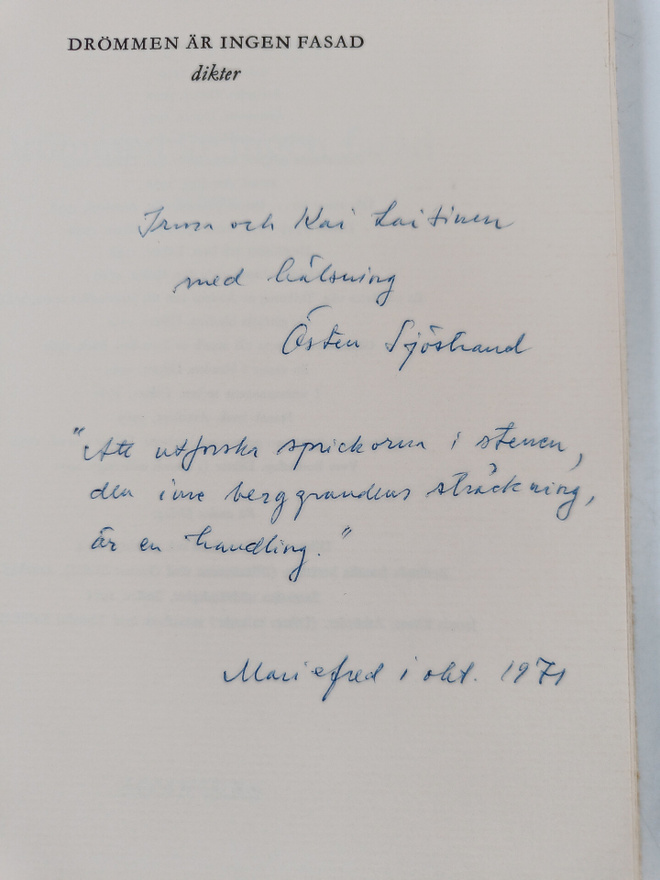 DRÖMMEN ÄR INGEN FASAD
dikter
Irma och Kai Laitinen
med hälsning
Östen Sjöstrand
"Att utforska sprickorna i stenen,
den inre berggrundens sträckning,
är en handling."
Mariefred i okt. 1971